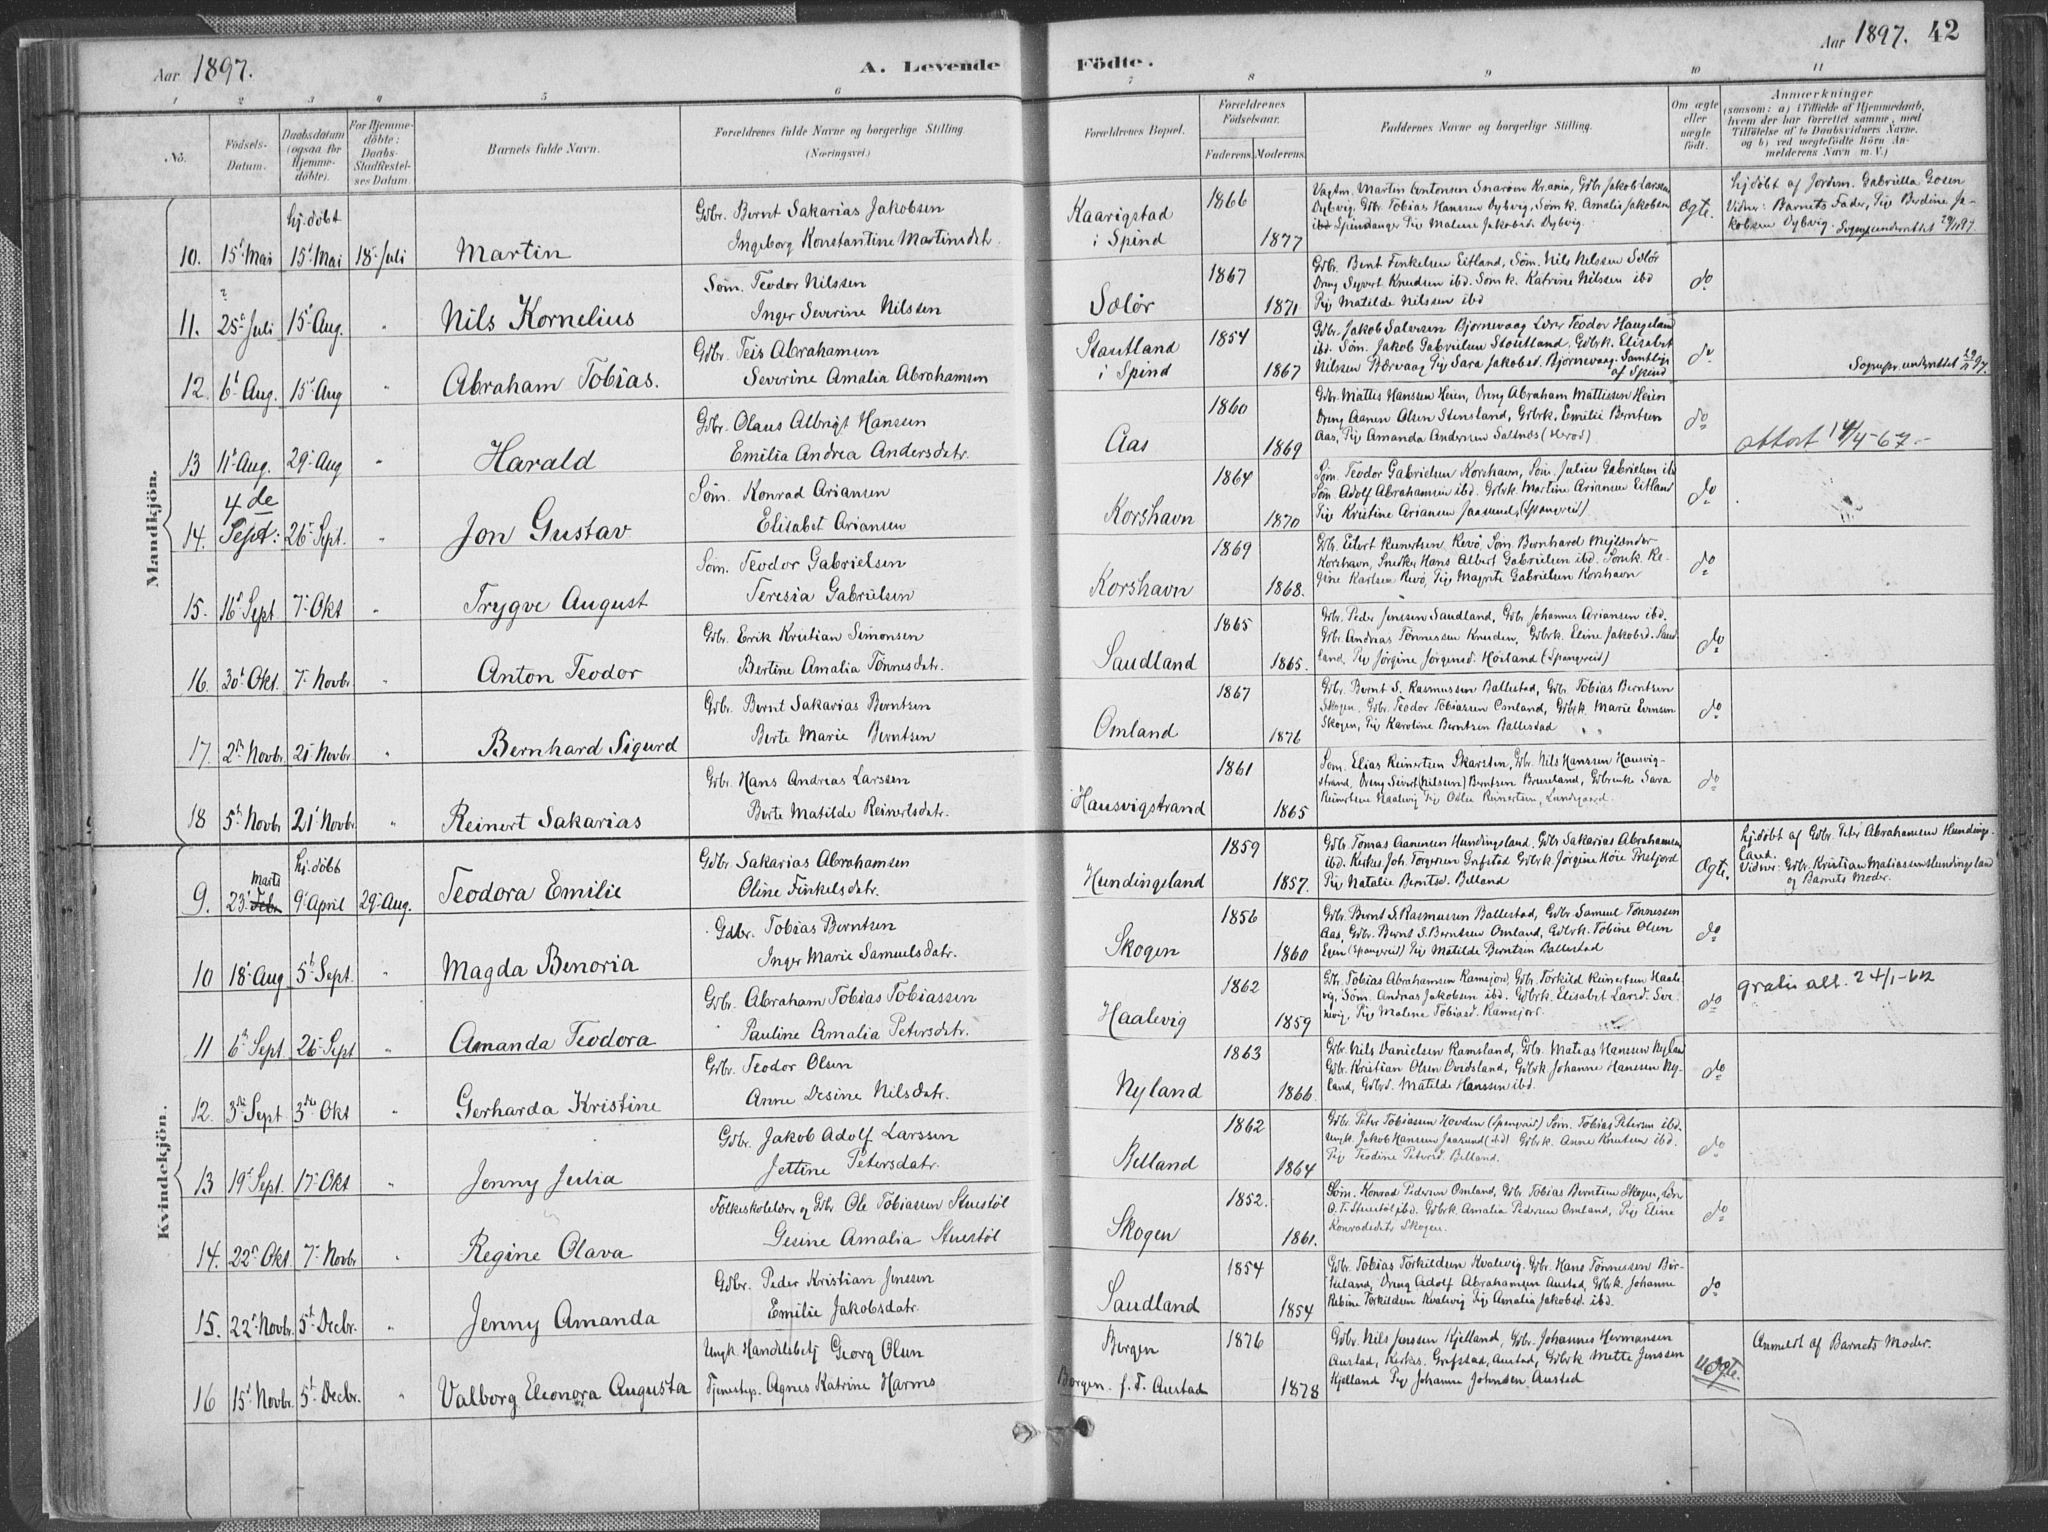 Aar 1897.
A. Levende Födte.
Aar 1897. 42
1 2 3 4 5 6 7 8 9 10 11
No.
Födsels-Datum.
Daabsdatum (ogsaa for Hjemme-döbte).
For Hjemme-döbte: Daabs-Stadfæstel-ses Datum.
Barnets fulde Navn.
Forældrenes fulde Navne og borgerlige Stilling (Næringsvei.)
Forældrenes Bopæl.
Forældrenes Födselsaar.
Faderens. Moderens.
Faddernes Navne og borgerlige Stilling.
Om ægte eller uægte födt.
Anmærkninger
(saasom: a) i Tilfælde af Hjemmedaab, hvem der har forrettet samme, med Tilföielse af to Daabsvidners Navne, og b) ved uægtefödte Börn An-melderens Navn m. V.)
Mandkjön.
10. 15' Mai hj.döbt 15' Mai 18' Juli Martin
Gdbr. Bernt Sakarias Jakobsen
Ingeborg Konstantine Martinsdtr.
Kaarigstad i Spind 1866 1877
Martin Antonsen Snarøen Kr.ania, Gdbr Jakob Larssen
Dybvig, Gdbr Tobias Hanssen Dybvig, Sømk. Amalia Jakobsen
Pig Malene Jakobsd. Dybvig.
Ægte.
hj.döbt af Jordem. Gabriella Gosen
Vidner: Barnets Fader, Pige Berdine Ja-
kobsen Dybvig.
11. 25' Juli 15' Aug. " Nils Kornelius
Søm. Teodor Nilssen
Inger Severine Nilssen
Sælør 1867 1871
Gdbr. Bent Finkelsen Eitland, Søm. Nils Nilssen Sælør
Dreng Syvert Knudsen ibd. Sømk. Katrine Nilssen ibd
Pige Matilde Nilssen ibd
do
12. 6' Aug. 15' Aug " Abraham Tobias.
Gdbr. Teis Abrahamsen
Severine Amalia Abrahamsen
Stautland i Spind 1854 1867
Gdbr. Jakob Salvesen Bjørnevaag Lærer Teodor Haugeland
ibd. Søm. Jakob Gabrielsen Stautland, Gdbrk. Elisabet
Nilssen Bærvaag Pig Sara Jakobsd. Bjørnevaag. Samtlige
af Spind
do
Sognepr. underrettet 29/11 97.
13 11' Aug. 29' Aug " Harald
Gdbr. Olaus Albrigt Hanssen
Emilia Andrea Andersdatr.
Aas 1860 1869
Gdbr. Mattis Hanssen Heien, Dreng Abraham Mattissen Heien
Dreng Aanen Olsen Stensland, Gdbrk. Emilie Berntsen
Aas, Pig Amanda Andersen Saltnæs (Herod).
do
attest 14/4-67.-
14. 4de Sept: 26' Sept. " Jon Gustav
Søm. Konrad Ariansen
Elisabet Ariansen
Korshavn 1864 1870
Søm. Teodor Gabrielsen Korshavn, Søm. Julius Gabrielsen ibd
Søm. Adolf Abrahamsen ibd. Gdbrk. Martine Ariansen Eitland
Pig Kristine Ariansen Jaasund, (Spangereid)
do
15. 16' Sept 7' Okt " Trygve August
Søm. Teodor Gabrielsen
Teresia Gabrielsen
Korshavn 1869 1868.
Gdbr. Eilert Reinertsen Revø, Søm. Bernhard Mejlænder
Korshavn, Snedker Hans Albert Gabrielsen ibd. Sømk. Re-
gine Karlsen Revø, Pig Magrete Gabrielsen Korshavn
do
16. 30' Okt. 7' Novbr. " Anton Teodor
Gdbr. Erik Kristian Simonsen
Bertine Amalia Tønnesdatr.
Saudland 1865 1865.
Gdbr. Peder Jenssen Saudland, Gdbr Johannes Ariansen ibd.
Gdbr. Andreas Tønnessen Knuden, Gdbrk. Eline Jakobsd. Saud-
land, Pig Jørgine Jørgensd. Høiland (Spangereid)
do
17. 2' Novbr. 21' Novbr. " Bernhard Sigurd
Gdbr. Bernt Sakarias Berntsen
Berte Marie Berntsen
Omland 1867 1876
Gdbr. Bernt S. Rasmussen Ballestad, Gdbr. Tobias Berntsen
Skogen, Gdbr. Teodor Tobiassen Omland, Gdbrk. Marie Evensen
Skogen, Pig Karoline Berntsen Ballestad
do
18 5' Novbr 21' Novbr. " Reinert Sakarias
Gdbr. Hans Andreas Larssen
Berte Matilde Reinertsdatr.
Hausvigstrand 1861 1865
Søm. Elias Reinertsen Skarsten, Gdbr. Nils Hanssen Hausvig-
strand, Dreng Sivert (Nilssen) Berntsen Bruseland, Gdbrenke Sara
Reinertsen Haalevig Pig Oslie Reinertsen, Lundegaard.
do
Kvindekjön.
9. 23' Marts Febr. hj.döbt 9' April 29' Aug. Teodora Emilie
Gdbr. Sakarias Abrahamsen
Oline Finkelsdatr.
Hundingsland 1859 1857.
Gdbr. Tomas Aanensen Hundingsland, Gdbr Sakarias Abrahamsen
ibd. Kirkes. Joh. Torgersen Grefstad Gdbrk. Jørgine Høie Prestjord
Pig Natalie Berntsd. Belland
Ægte.
hj.döbt af Gdbr. Peter Abrahamsen Hundings-
land.
Vidner: Gdbr. Kristian Matiassen Hundingsland
og Barnets Moder.
10 18' Aug 5' Sept. " Magda Benoria
Gdbr. Tobias Berntsen
Inger Marie Samuelsdatr.
Skogen 1856 1860
Gdbr. Bernt S. Rasmussen Ballestad, Gdbr Samuel Tønnessen
Aas, Gdbr. Bernt S. Berntsen Omland, Gdbrk. Tobine Olsen
Egen (Spangereid) Pig Matilde Berntsen Ballestad
do
11 6' Sept 26' Sept " Amanda Teodora
Gdbr. Abraham Tobias Tobiassen
Pauline Amalia Petersdatr.
Haalevig 1862 1859
Gdbr. Tobias Abrahamsen Ramsjord, Gdbr. Torkild Reinertsen Haale-
vig, Søm. Andreas Jakobsen ibd. Gdbrk. Elisabet Larsd.
Pig Malene Tobiasd. Ramsjord.
do
gratis att. 24/1-62
12. 3' Sept 3' Okt " Gerharda Kristine
Gdbr. Teodor Olsen
Anne Desine Nilsdatr.
Nyland 1863 1866
Gdbr. Nils Danielsen Ramsland, Gdbr. Matias Hanssen Nyland
Gdbr. Kristian Olsen Ovidsland, Gdbrk Johanne Hanssen Ny-
land, Gdbrd. Matilde Hanssen ibd.
do
13 19' Sept. 17' Okt " Jenny Julia
Gdbr. Jakob Adolf Larssen
Jettine Petersdatr.
Belland 1862 1864
Gdbr. Peter Tobiassen Hovden (Spangereid) Søm. Tobias Petersen ibd.
Ungk. Jakob Hansen Jaasund (ibd) Gdbrk. Anne Knutsen ibd.
Pig Teodine Petersd. Belland.
do
14. 22' Okt. 7' Novbr " Regine Olava
Folkeskolelærer og Gdbr Ole Tobiassen Stuestøl
Gesine Amalia Stuestøl
Skogen 1852. 1861.
Søm. Konrad Pedersen Omland, Gdbr Tobias Berntsen Skogen, Lærer
O. T. Stuestøl ibd. Gdbrk Amalia Pedersen Omland, Pig Eline
Konradsdatr Skogen.
do
15. 22' Novbr. 5' Decbr. " Jenny Amanda
Gdbr. Peder Kristian Jenssen
Emilie Jakobsdatr.
Saudland 1854 1854
Gdbr. Tobias Torkildsen Kvalevig, Gdbr. Hans Tønnessen Bir-
keland, Dreng Adolf Abrahamsen Austad, Gdbk. Johanne
Rebine Torkildsen Kvalevig Pig Amalia Jakobsd. ibd.
do
16 15' Novbr. 5' Decbr. " Valborg Eleonora Augusta
Ungk. Handelsbetj Georg Olsen
Tjenestep. Agnes Katrine Harms
Bergen
Bergen. f. T. Austad 1876 1878
Gdbr. Nils Jenssen Kjelland, Gdbr. Johannes Hermansen
Austad, Kirkes. Grefstad, Austad, Gdbrk Mette Jenssen
Kjelland Pig Johanne Johnsen Austad
Uægte.
Anmeldt af Barnets Moder.